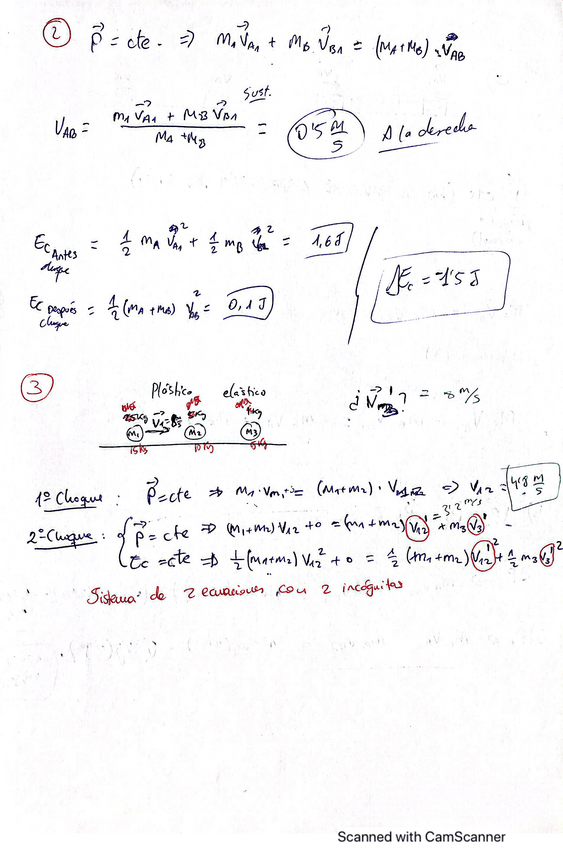 ② P⃗ = cte. ⇒ m_A V⃗_A1 + m_B V⃗_B1 = (m_A+m_B) · V⃗_AB
V_AB = (m_A V⃗_A1 + m_B V⃗_B1) / (m_A + m_B) = Sust. 0'5 m/s A la derecha
Ec Antes choque = 1/2 m_A V⃗_A1² + 1/2 m_B V² = 1,6 J
ΔEc = -1'5 J
Ec Después choque = 1/2 (m_A + m_B) V_AB² = 0,1 J
③ Plástico elástico
¿ V⃗' ? = 8 m/s
m₁ m₂ m₃
15kg 10kg 5kg
1º Choque : P⃗ = cte ⇒ m₁ · v_m₁ = (m₁+m₂) · V ⇒ V₁₂ = 4'8 m/s
2º Choque : P⃗ = cte ⇒ (m₁+m₂) V₁₂ + 0 = (m₁+m₂) V₁₂' + m₃ V₃'
= 3'2 m/s
Ec = cte ⇒ 1/2 (m₁+m₂) V₁₂² + 0 = 1/2 (m₁+m₂) V₁₂'² + 1/2 m₃ V₃'²
Sistema de 2 ecuaciones con 2 incógnitas
Scanned with CamScanner